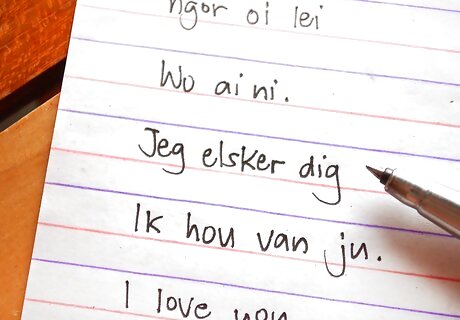 ngor oi lei
Wo ai ni.
Jeg elsker dig
Ik hou van ju.
I love you